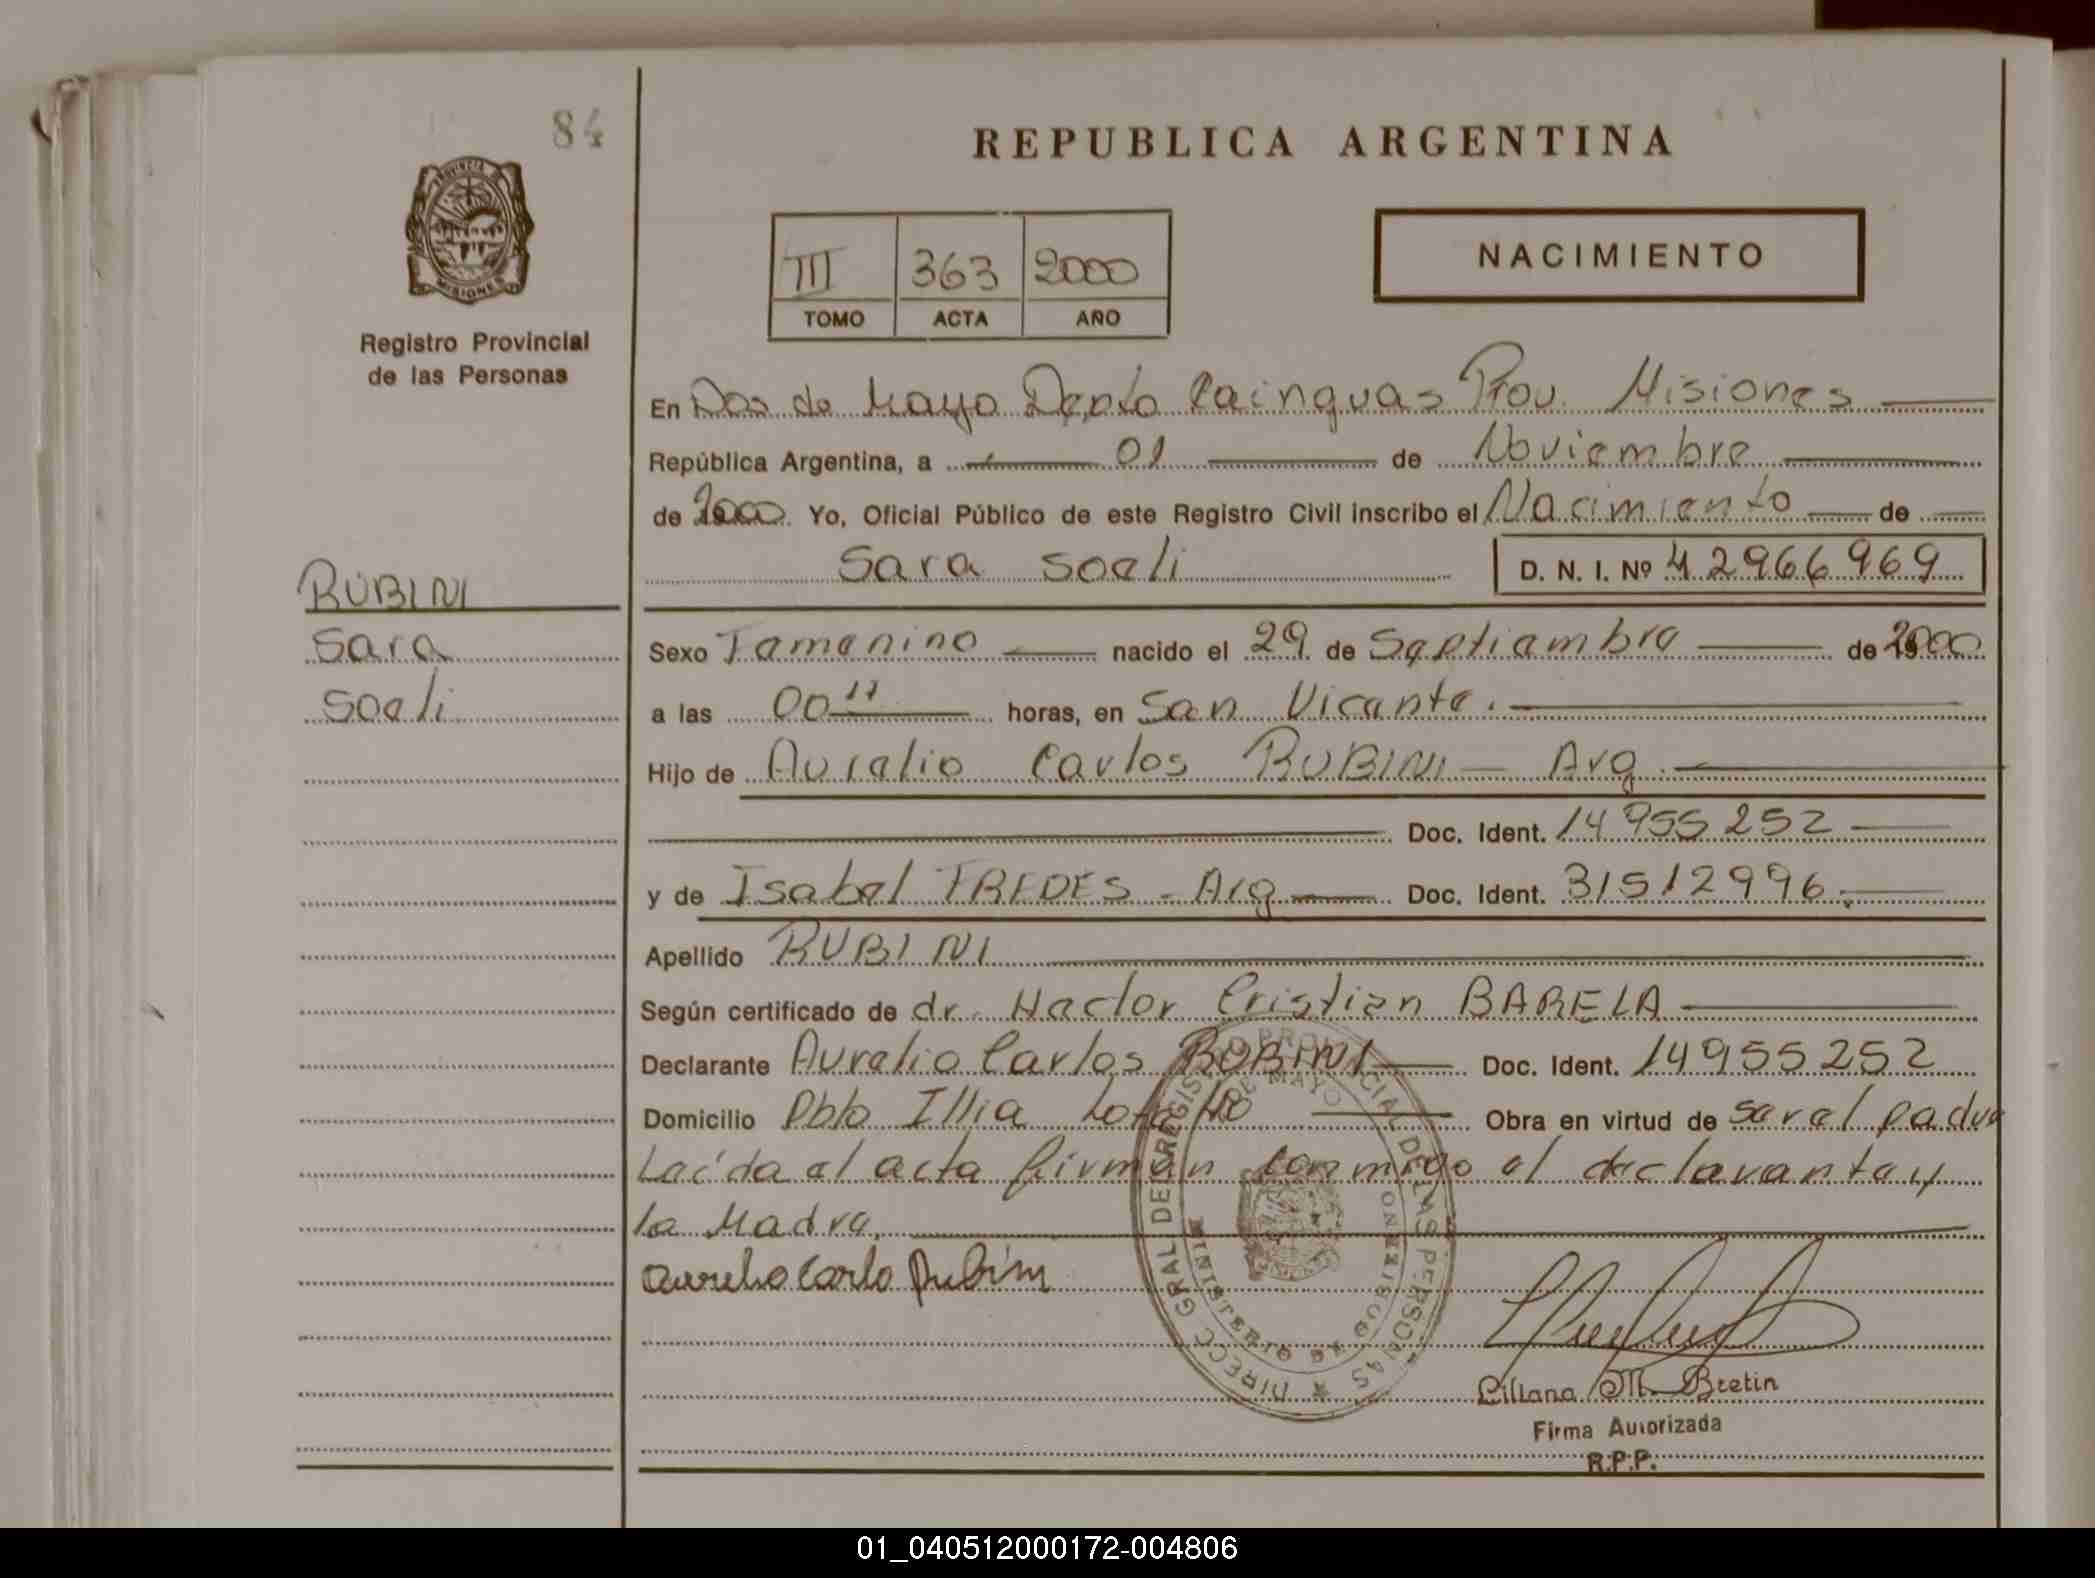 84
REPUBLICA ARGENTINA
PROVINCIA DE
MISIONES
Registro Provincial
de las Personas
III 363 2000
TOMO ACTA AÑO
NACIMIENTO
En Dos de Mayo Depto Cainguas Prov. Misiones
República Argentina, a 01 de Noviembre
de 2000 Yo, Oficial Público de este Registro Civil inscribo el Nacimiento de
Sara Soeli D. N. I. Nº 42966969
RUBINI
Sara
Soeli
Sexo Femenino nacido el 29 de Septiembre de 2000
a las 00 11 horas, en San Vicente.
Hijo de Aurelio Carlos RUBINI - Arg.
Doc. Ident. 14955252
y de Isabel FREDES - Arg Doc. Ident. 31512996.
Apellido RUBINI
Según certificado de dr. Hector Cristian BARELA
Declarante Aurelio Carlos RUBINI Doc. Ident. 14955252
Domicilio Pblo Illia Obra en virtud de ser el padre
Leída el acta firman conmigo el declarante y
la Madre.
Aurelio Carlo Rubini
DIRECC GRAL DEL REGISTRO PROVINCIAL DE LAS PERSONAS
DE MAYO
MINISTERIO DE GOBIERNO
Liliana M. Bretin
Firma Autorizada
R.P.P.
01_040512000172-004806